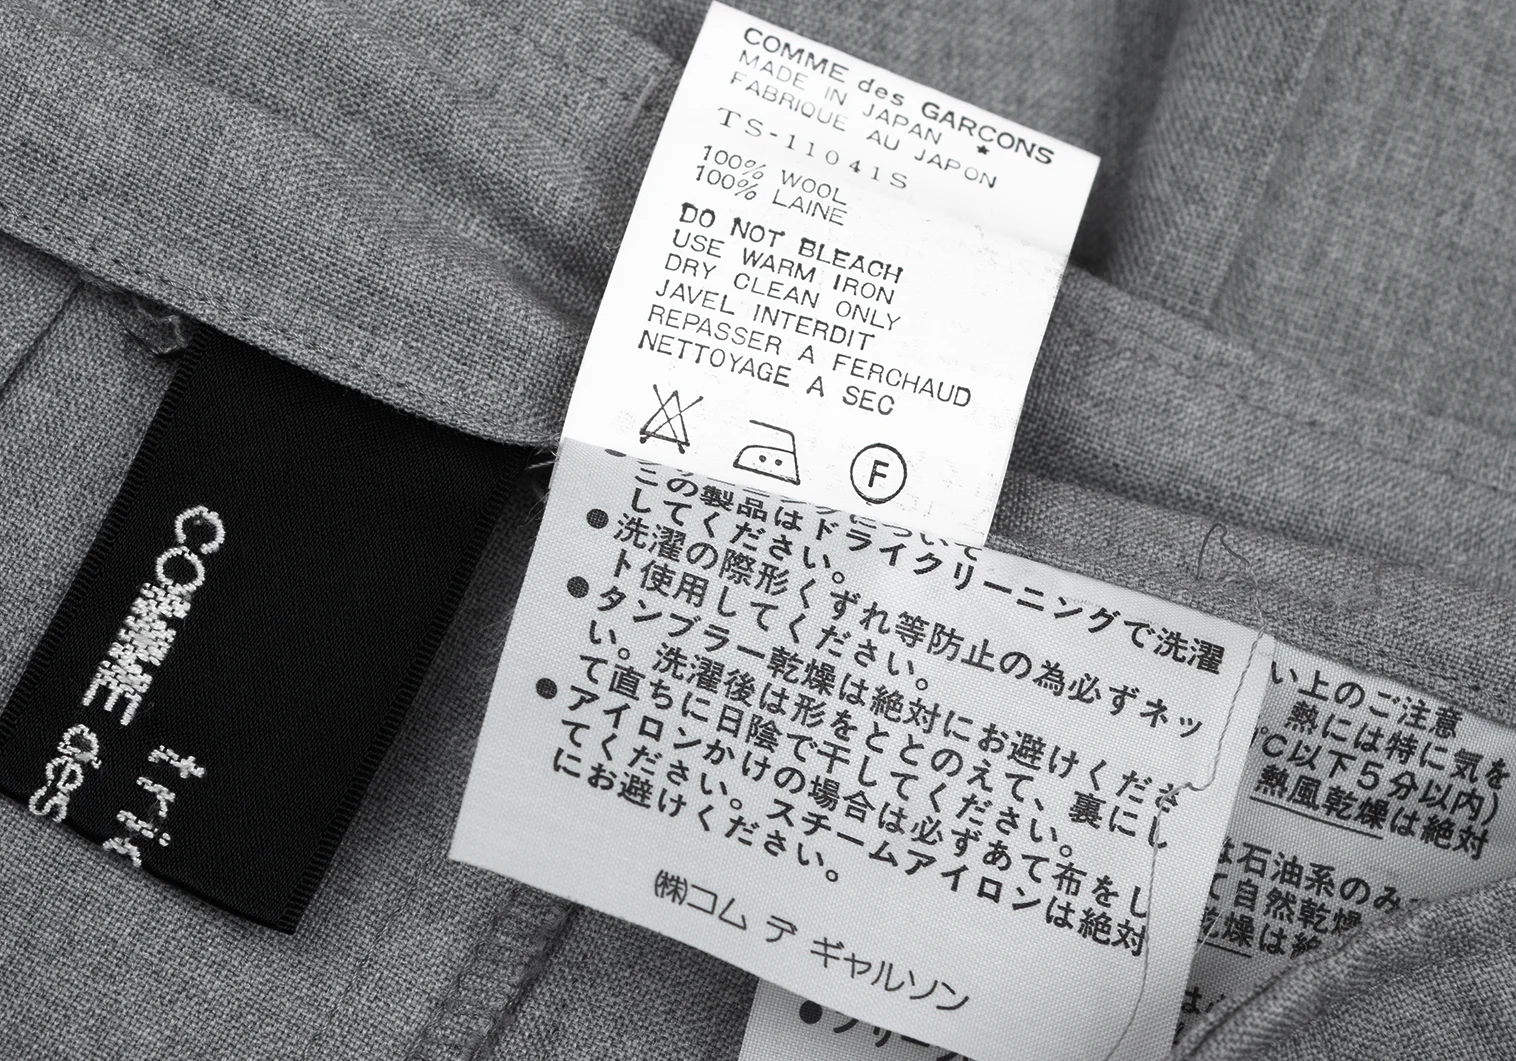 COMME des GARÇONS
MADE IN JAPAN ★
FABRIQUE AU JAPON
TS-11041S
100% WOOL
100% LAINE
DO NOT BLEACH
USE WARM IRON
DRY CLEAN ONLY
JAVEL INTERDIT
REPASSER A FERCHAUD
NETTOYAGE A SEC
F
この製品はドライクリーニングで洗濯
してください。
●洗濯の際形くずれ等防止の為必ずネッ
ト使用してください。
●タンブラー乾燥は絶対にお避けくださ
い。洗濯後は形をととのえて、裏にし
て直ちに日陰で干してください。
●アイロンかけの場合は必ずあて布をし
てください。スチームアイロンは絶対
にお避けください。
㈱コム デ ギャルソン
い上のご注意
熱には特に気を
℃以下5分以内)
熱風乾燥は絶対
は石油系のみ
て自然乾燥
乾燥は絶
comme des
tric